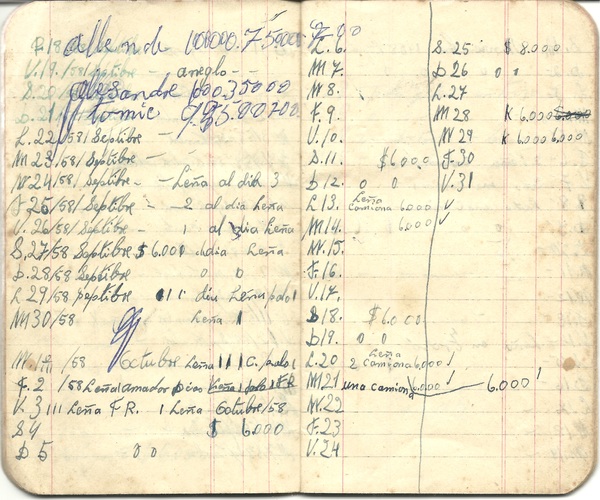 Allende 100000.75000
V.19./58/Septibre — aneglo —
Alesandre 000.35000
tomic
L.22/58/Septibre — —
M 23/58/Septibre —
M 24/58/Septibre. - — Leña al dia 3
J 25/58/ Septibre - — 2 al dia Leña
V. 26/58/ Septibre - 1 al dia Leña
S.27/58 Septibre $ 6.000 1 dia Leña
D.28/58 Septibre 0 0
L 29/58 Septibre
M 30/58 Leña 1
/58 Octubre Leña 111
J. 2 /58
V. 3 111 Leña F R. 1 Leña Octubre/58
S 4 $ 6.000
D 5 0 0
L. 6.
M 7.
M 8.
J. 9
V. 10.
S. 11. $6000
D 12. 0 0
L 13. Leña camiona 6.000 ✓
M 14. 6.000 ✓
M. 15.
J. 16.
V. 17.
S 18. $6.000
D 19. 0 0
L. 20 Leña 2 camiona 6.000 !
M 21 una camiona 6.000 ! 6.000 !
M. 22
J. 23
V. 24
S. 25 $ 8.000
D 26 0 0
L. 27
M 28 K 6.000
M 29 K 6.000 6.000
J. 30
V. 31